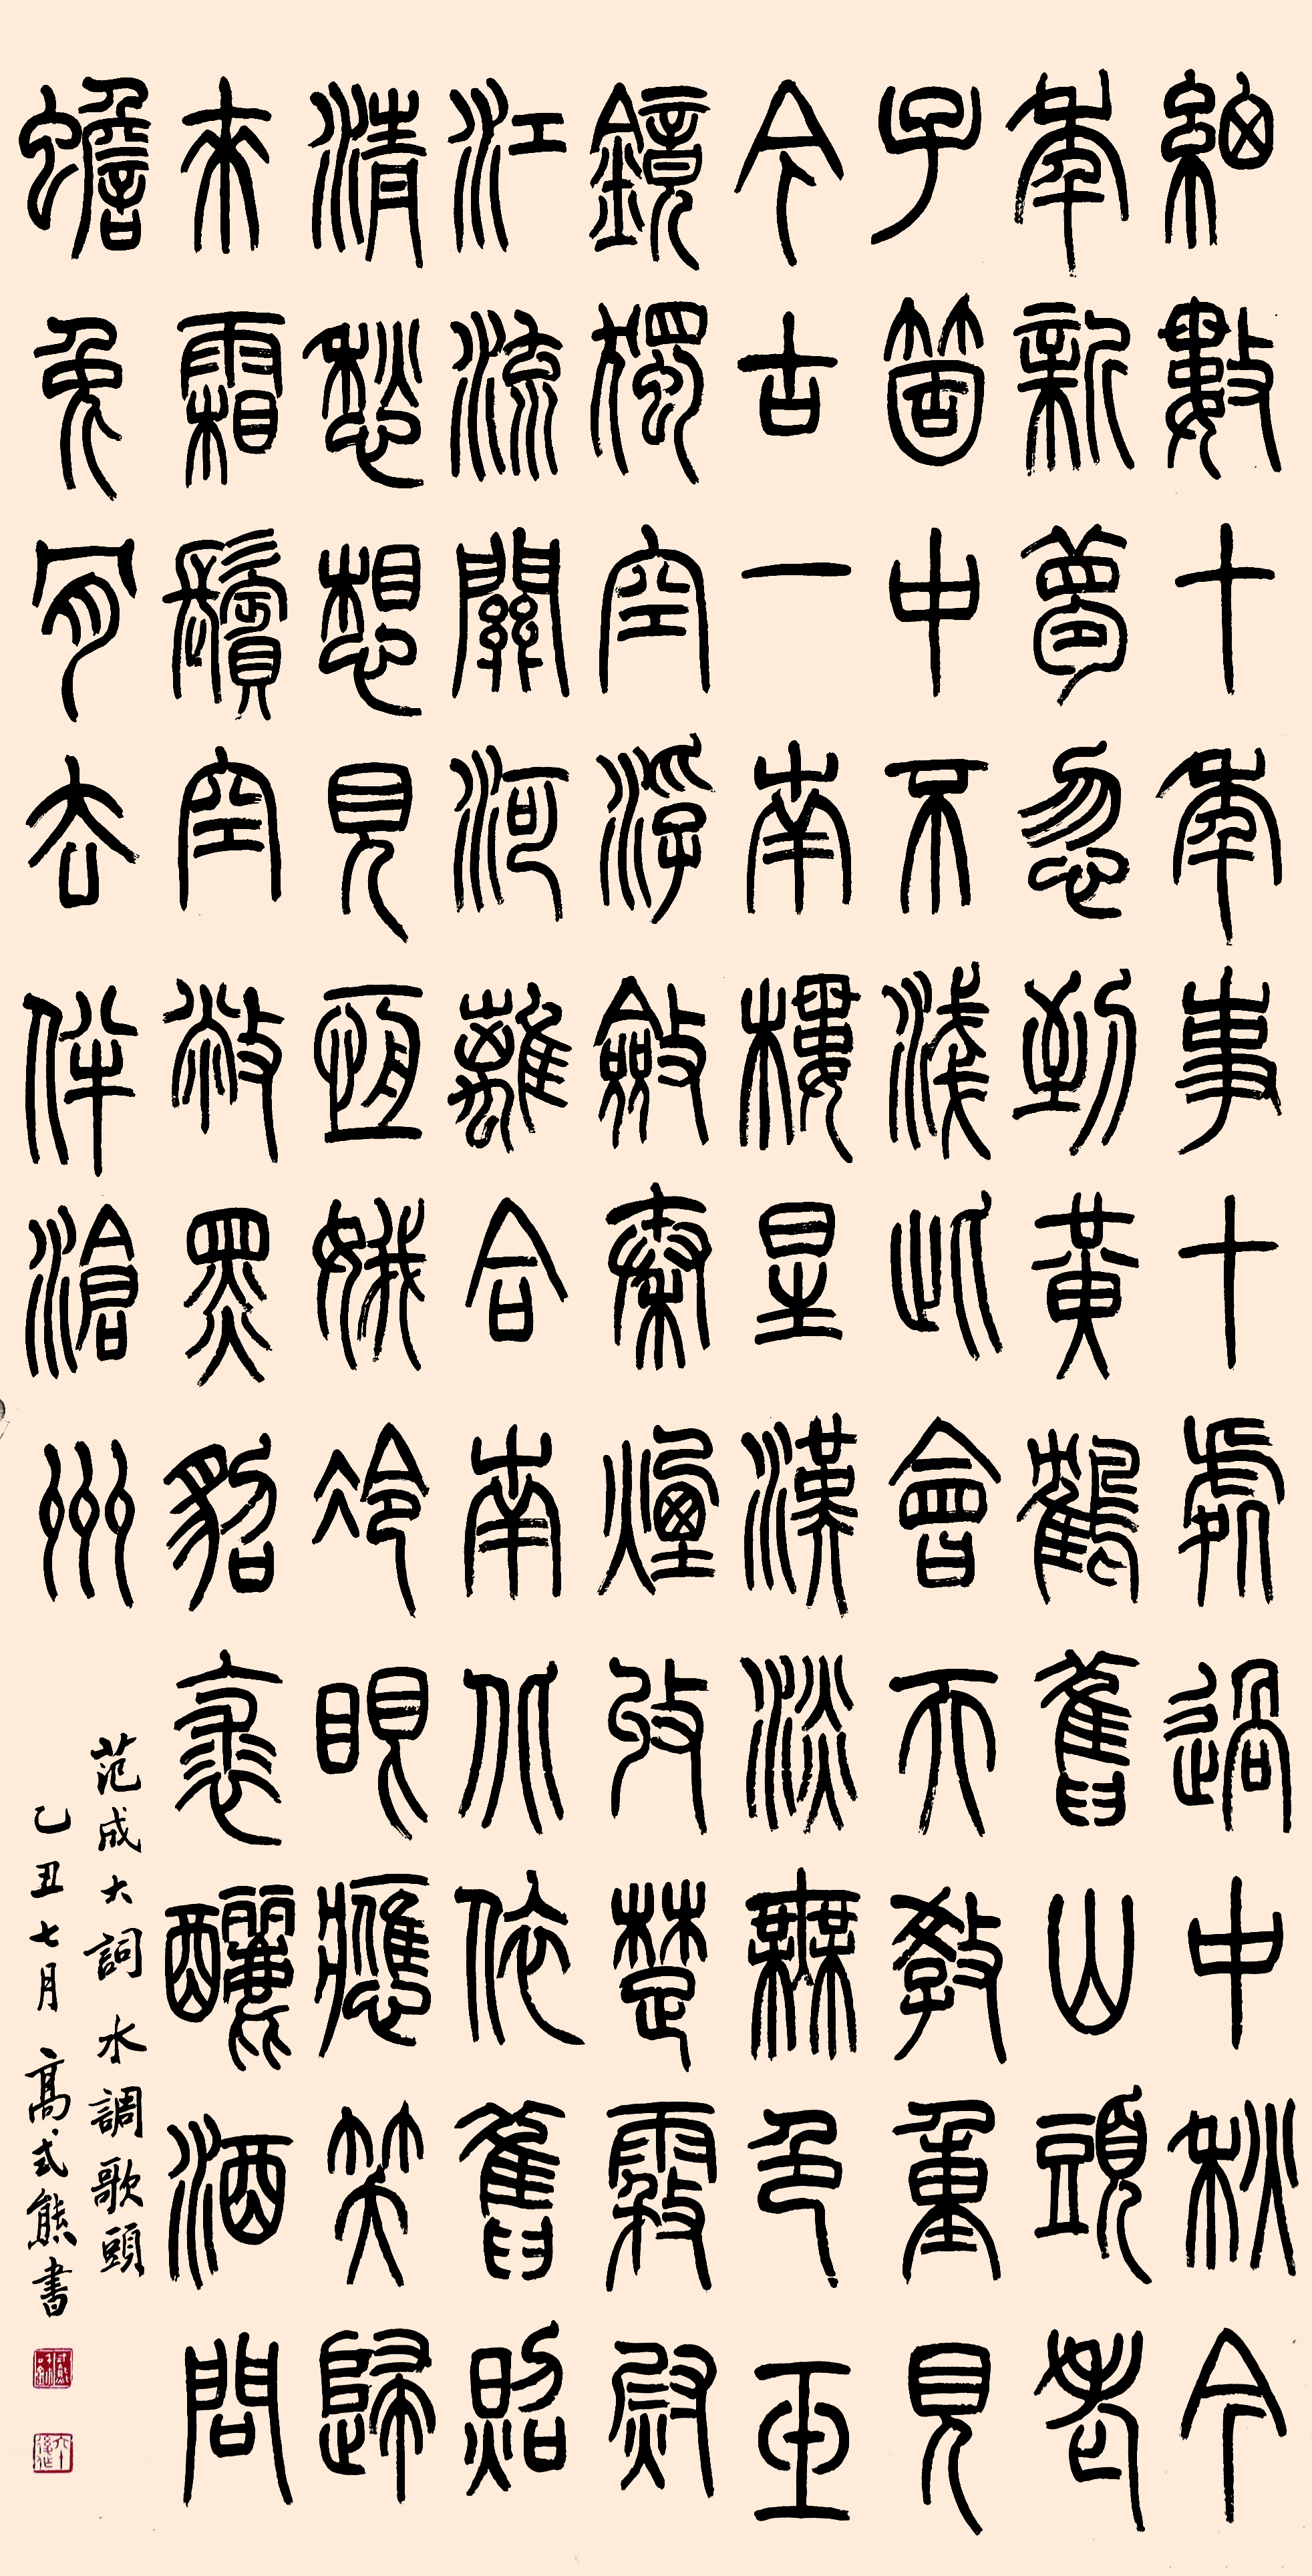 細數十年事十處過中秋今
年新夢忽到黃鶴舊山頭老
子箇中不淺此會天教重見
今古一南樓星漢淡無色玉
鏡獨空浮斂秦煙收楚霧熨
江流關河離合南北依舊照
清愁想見恆娥冷眼應笑歸
來霜鬢空敝黑貂裘釃酒問
蟾兔肯去伴滄州
范成大詞水調歌頭
乙丑七月高式熊書
六十後作